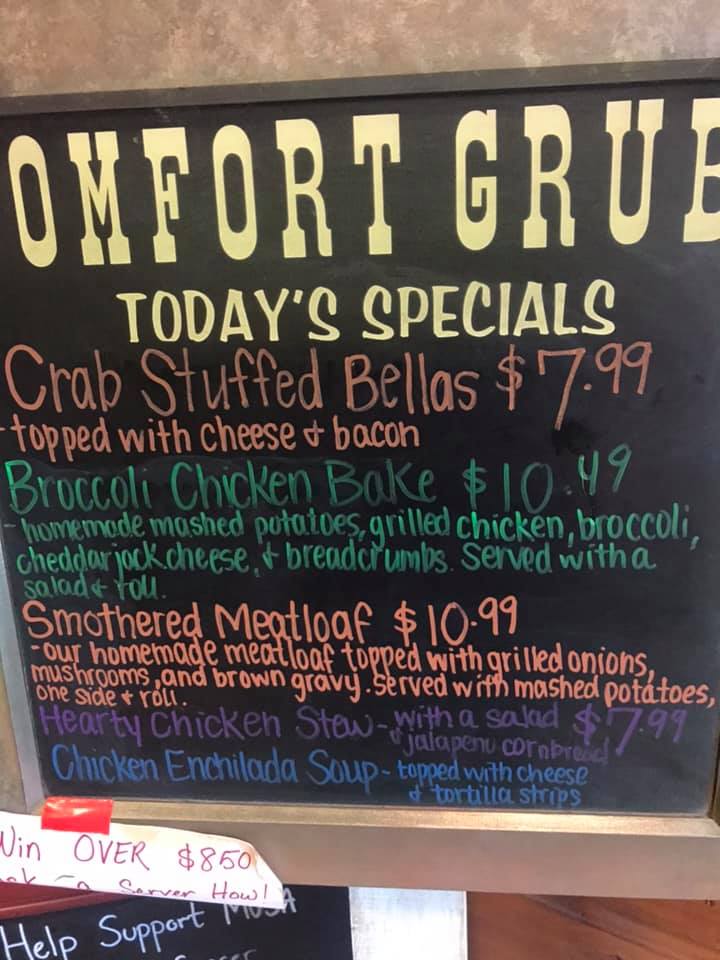 OMFORT GRUB
TODAY'S SPECIALS
Crab Stuffed Bellas $7.99
-topped with cheese & bacon
Broccoli Chicken Bake $10.49
-homemade mashed potatoes, grilled chicken, broccoli,
cheddar jack cheese, & breadcrumbs. Served with a
salad & roll.
Smothered Meatloaf $10.99
-our homemade meatloaf topped with grilled onions,
mushrooms, and brown gravy. Served with mashed potatoes,
one side & roll.
Hearty Chicken Stew - with a salad $7.99
& jalapeno cornbread
Chicken Enchilada Soup - topped with cheese
& tortilla strips
Win OVER $850
a Server How!
Help Support MUSA